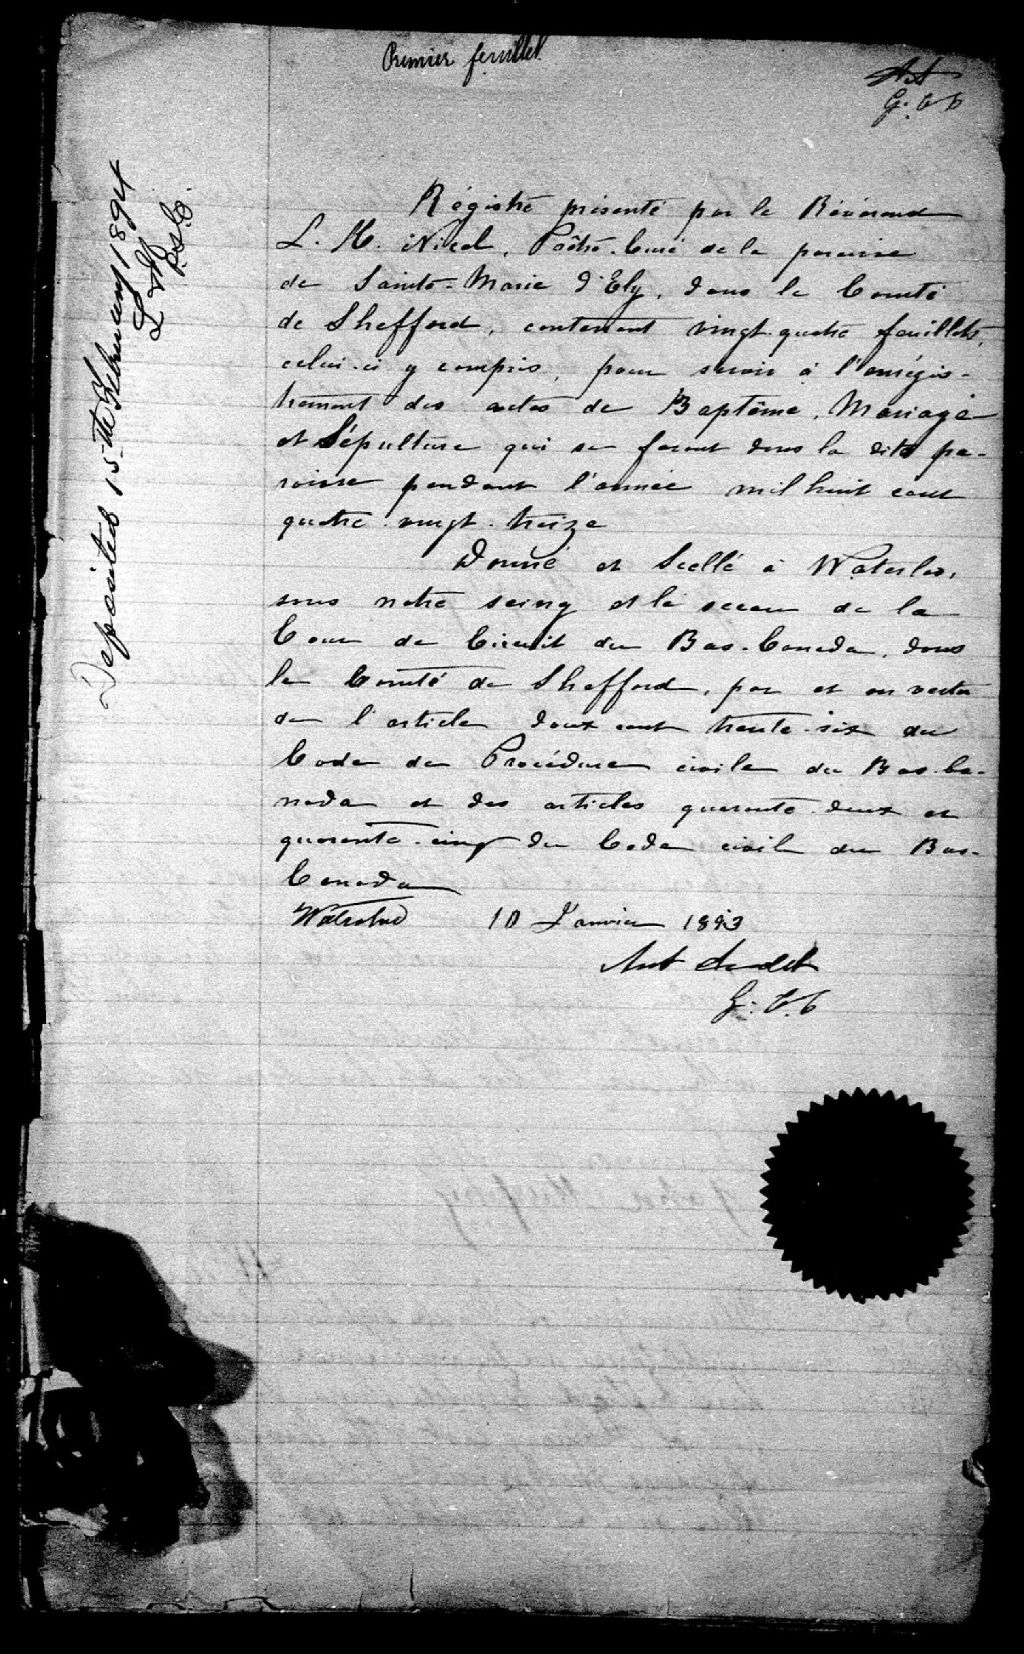 Premier feuillet
G. C. C
Régistre présenté par le Révérend
L. H. Nicol, Prêtre-Curé de la paroisse
de Sainte-Marie d'Ely, dans le Comté
de Shefford, contenant vingt-quatre feuillets,
celui-ci y compris, pour servir à l'enrégis-
trement des actes de Baptême, Mariage
et Sépulture qui se feront dans la dite pa-
roisse pendant l'année mil huit cent
quatre-vingt-treize
Donné et Scellé à Waterloo,
sous notre seing et le sceau de la
Cour de Circuit du Bas-Canada, dans
le Comté de Shefford, par et en vertu
de l'article deux cent trente-six du
Code de Procédure civile du Bas-Ca-
nada et des articles quarante-deux et
quarante-cinq du Code civil du Bas-
Canada
Waterloo 10 Janvier 1893
G. C. C
Deposited 15th February 1894